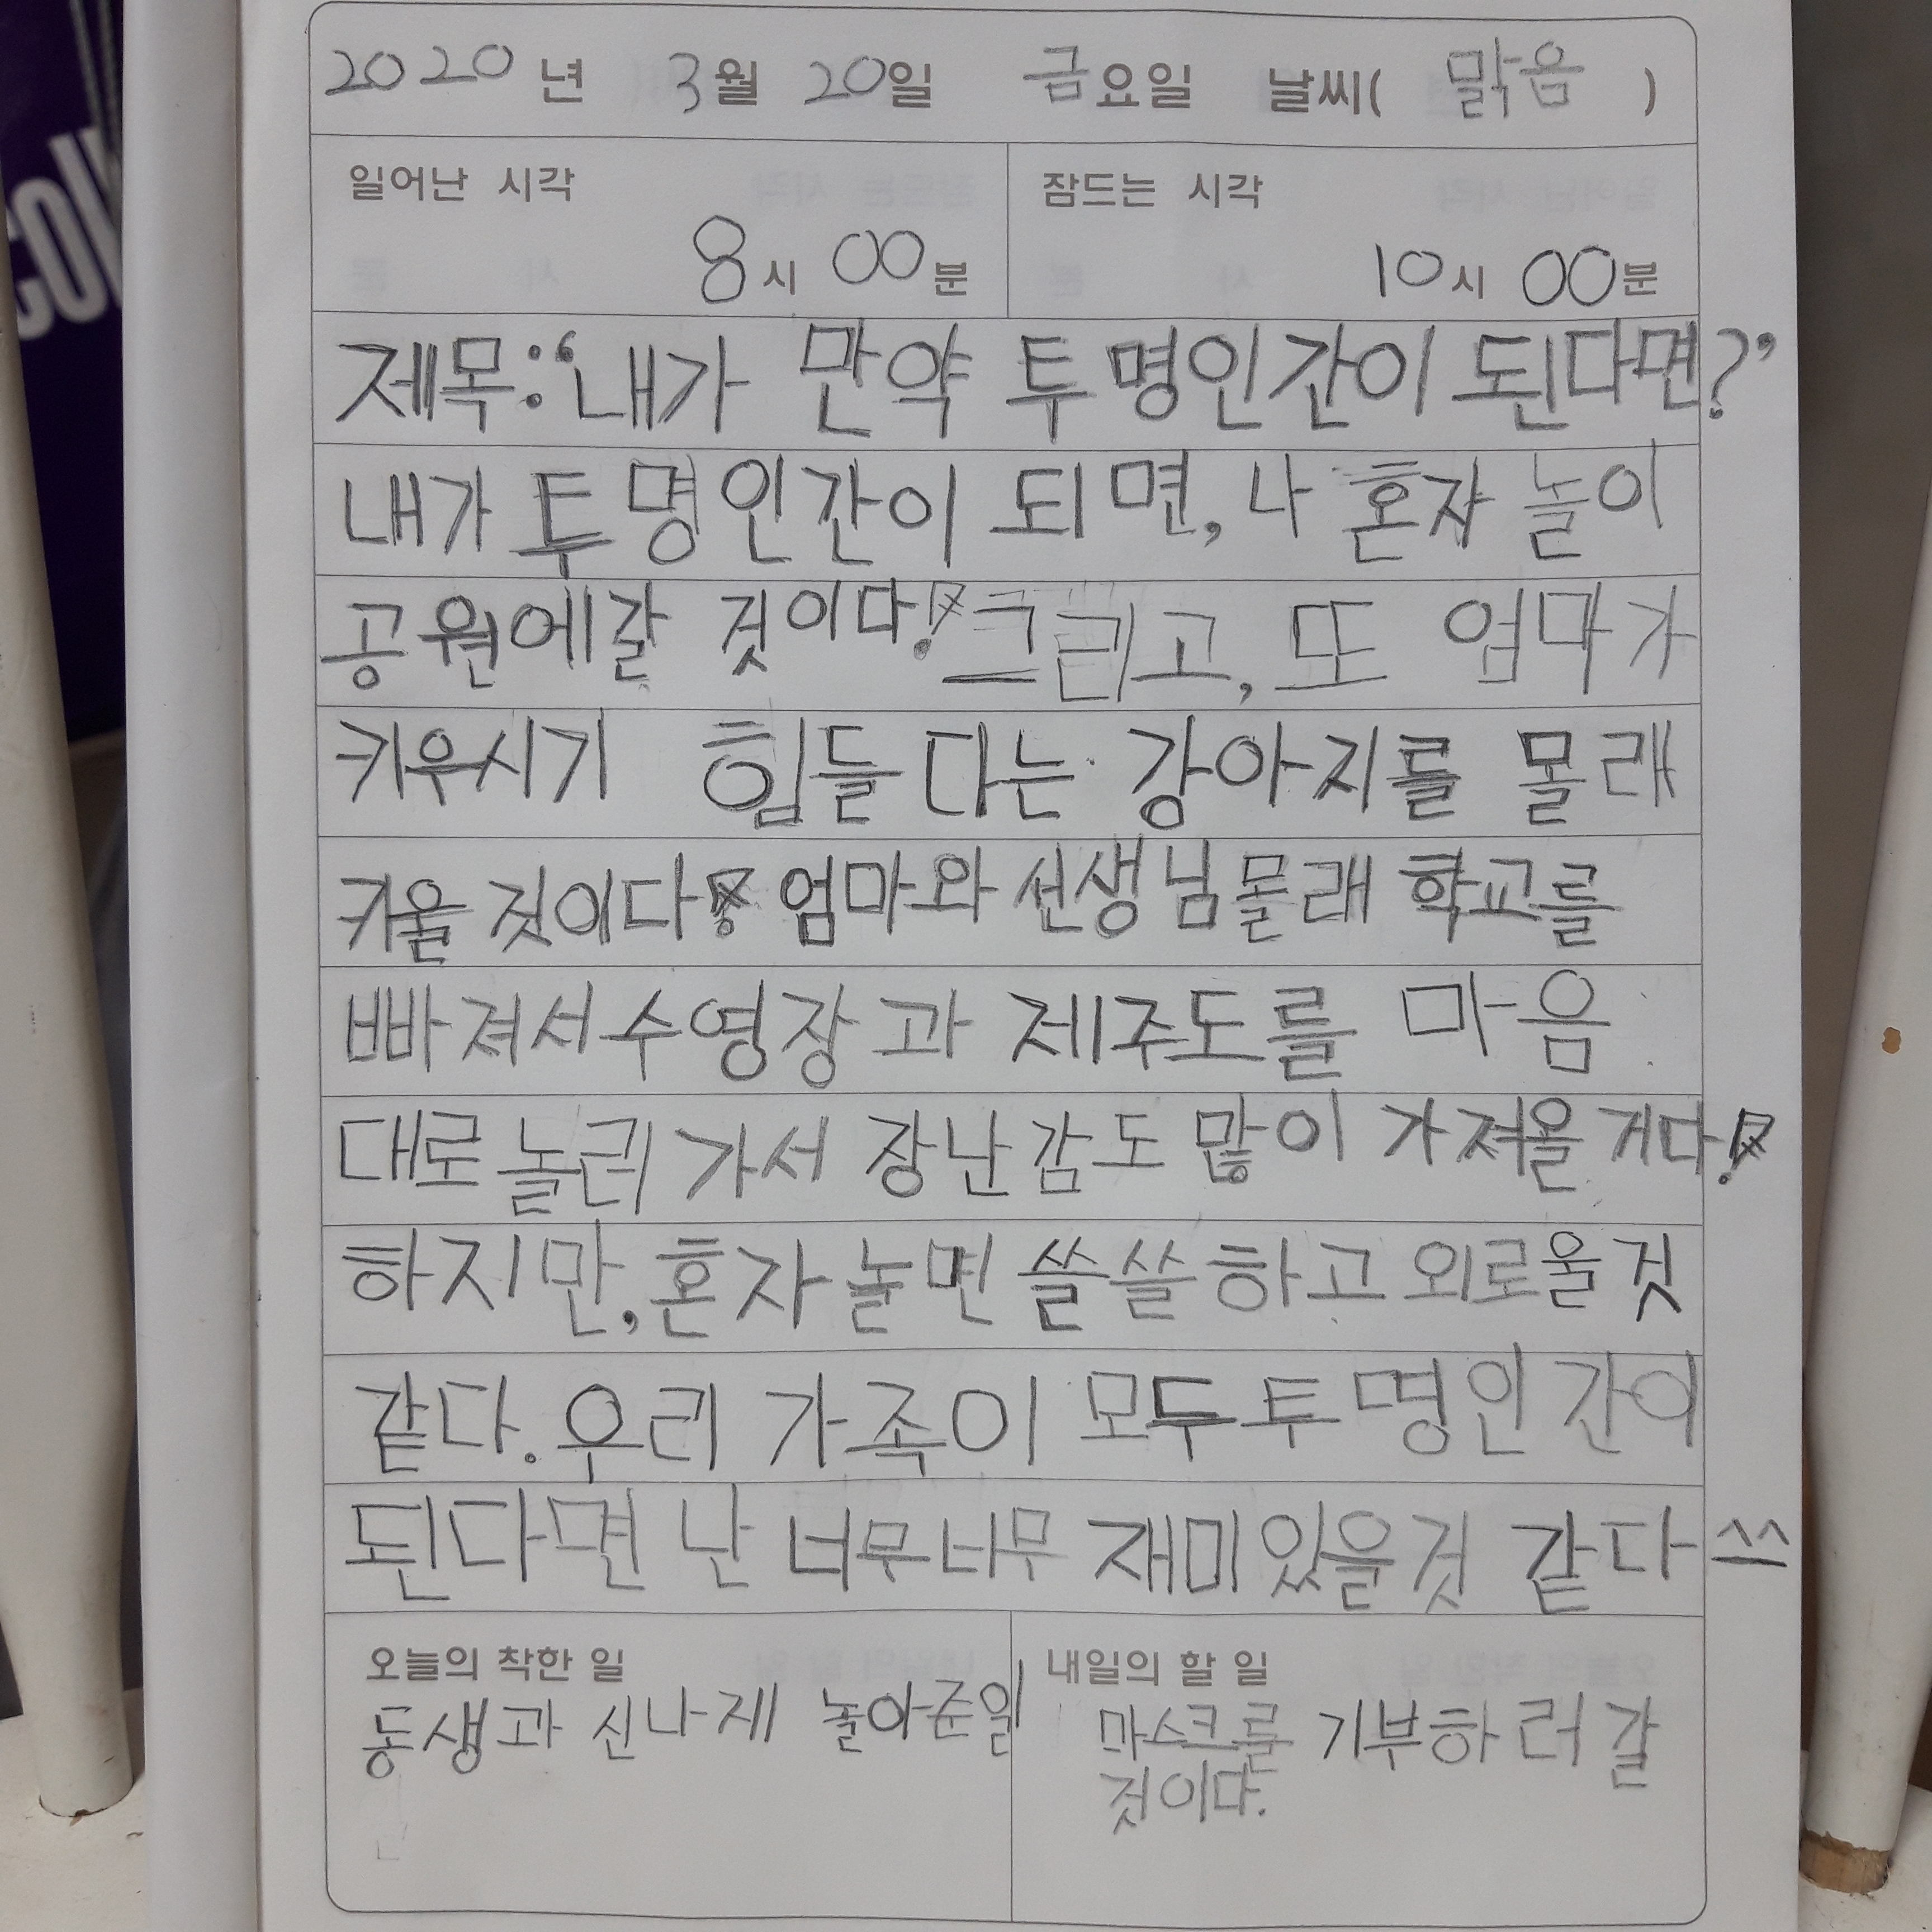 2020년 3월 20일 금요일 날씨( 맑음 )
일어난 시각 잠드는 시각
8시 00분 10시 00분
제목:'내가 만약 투명인간이 된다면?'
내가 투명인간이 되면, 나 혼자 놀이
공원에갈 것이다! 그리고, 또 엄마가
키우시기 힘들다는 강아지를 몰래
키울 것이다! 엄마와 선생님몰래 학교를
빠져서 수영장과 제주도를 마음
대로 놀러 가서 장난감도 많이 가져올 거다!
하지만, 혼자 놀면 쓸쓸하고 외로울 것
같다. 우리 가족이 모두 투명인간이
된다면 난 너무너무 재미있을것 같다^^
오늘의 착한 일 내일의 할 일
동생과 신나게 놀아준일 마스크를 기부하러 갈
것이다.